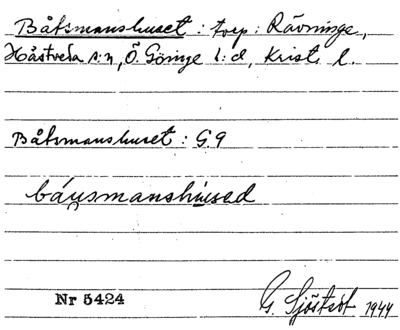 Båtsmanshuset: torp: Rävninge,
Hästveda s:n, Ö. Göinge l:d, Krist. l.
Båtsmanshuset: G9
båusmanshused
Nr 5424
G. Sjöstedt 1944